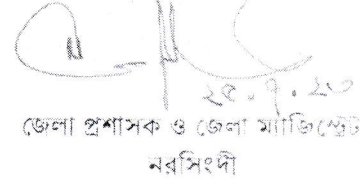 ২৫.৭.২৩
জেলা প্রশাসক ও জেলা ম্যাজিস্ট্রেট
নরসিংদী